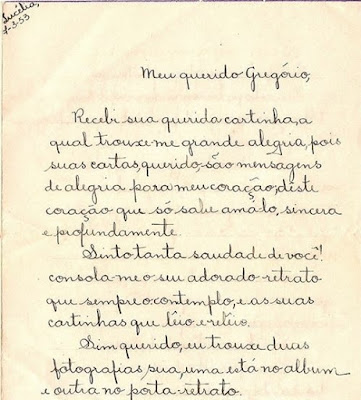 Lucélia,
7-3-53
Meu querido Gregório,
Recebi sua querida cartinha, a
qual trouxe-me grande alegria, pois
suas cartas, querido, são mensagens
de alegria para meu coração, dêste
coração que só sabe amá-lo, sincera
e profundamente.
Sinto tanta saudade de você!
consola-me o seu adorado retrato
que sempre o contemplo, e as suas
cartinhas que lêio e relêio.
Sim querido, eu trouxe duas
fotografias, sua, uma está no album
e outra no porta-retrato.